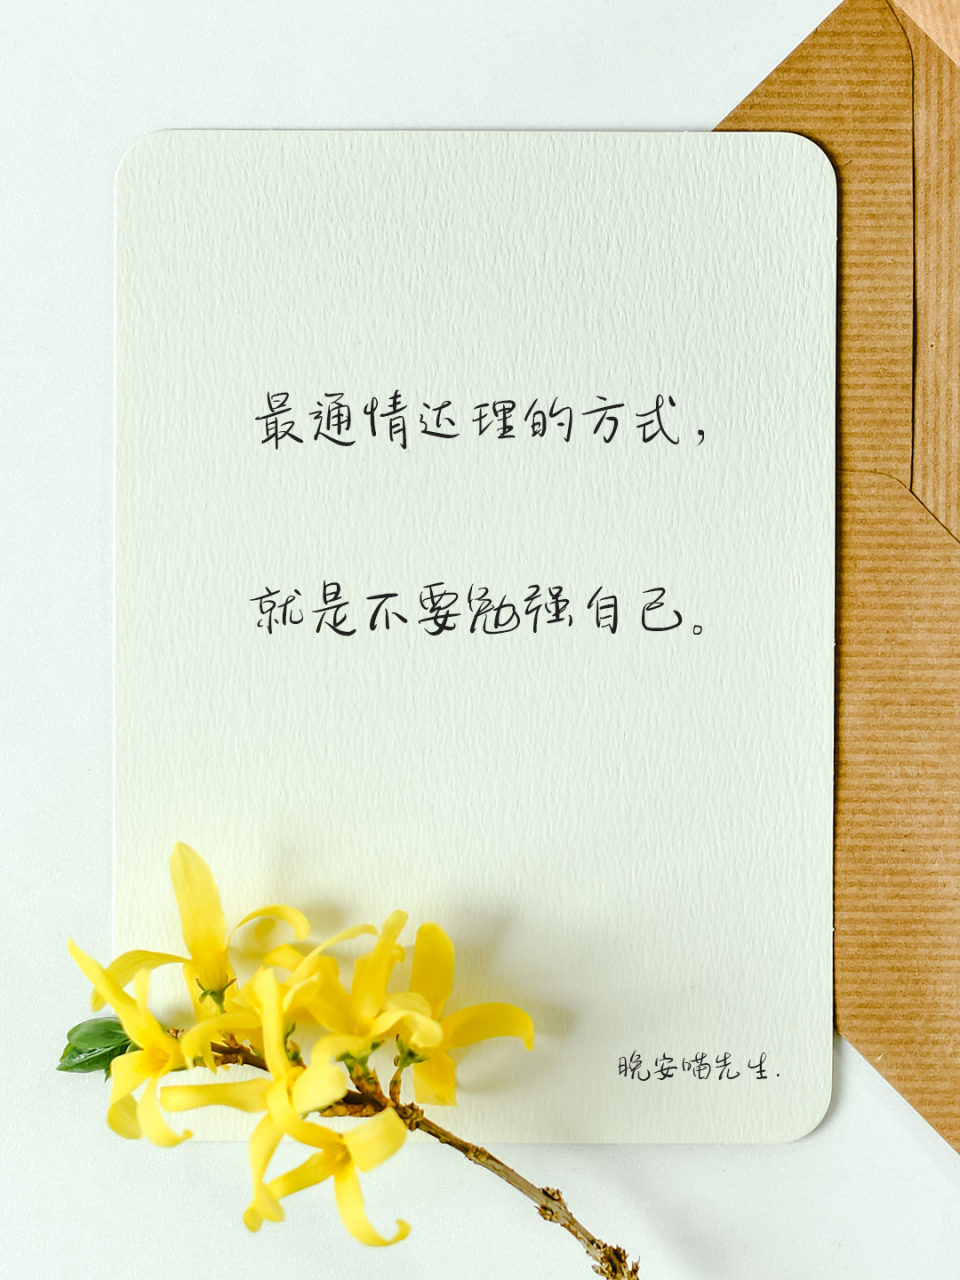 最通情达理的方式，
就是不要勉强自己。
晚安喵先生.